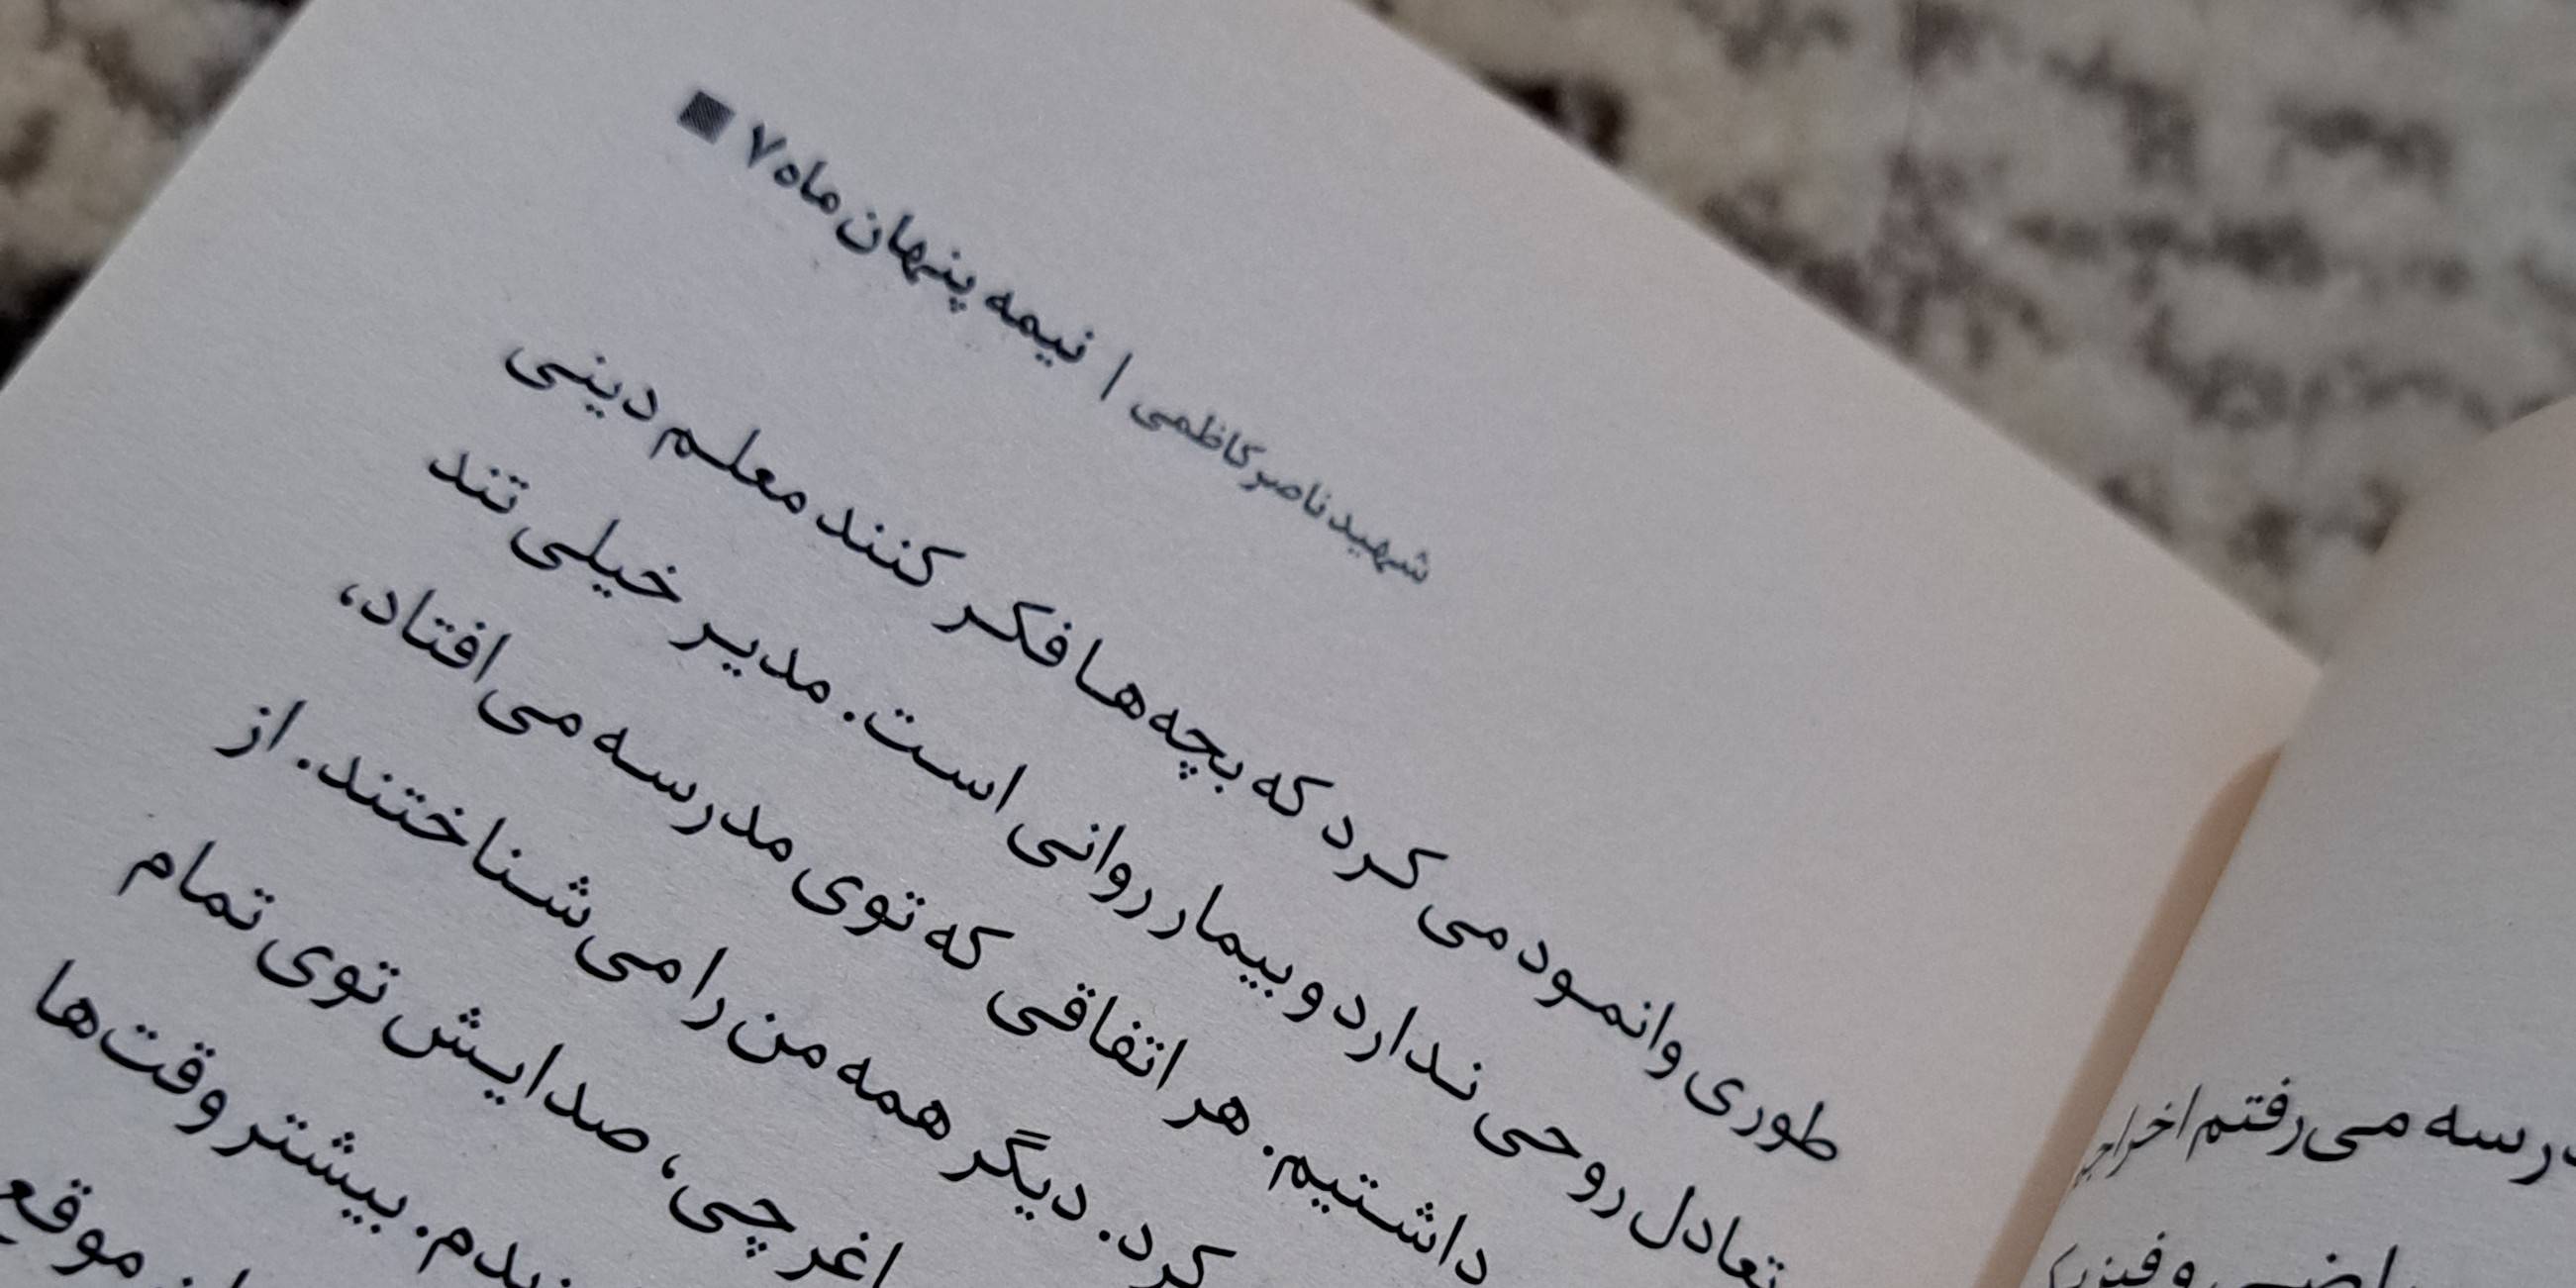 شهید ناصر کاظمی | نیمه پنهان ماه ۷
طوری وانمود می کرد که بچه ها فکر کنند معلم دینی
تعادل روحی ندارد و بیمار روانی است. مدیر خیلی تند
داشتیم. هر اتفاقی که توی مدرسه می افتاد،
کرد. دیگر همه من را می شناختند. از
اغرچی، صدایش توی تمام
بیشتر وقت ها
موقع
رسه می رفتم اخراج